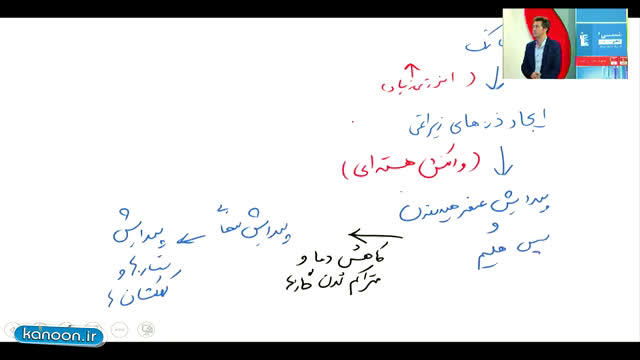 (انرژی زیاد)
ایجاد ذره‌های زیراتمی
(واکنش هسته‌ای)
پیدایش عنصر هیدروژن
و
سپس هلیم
کاهش دما و
متراکم شدن گازها
پیدایش سحابی
پیدایش
ستاره‌ها و
کهکشان‌ها
kanoon.ir